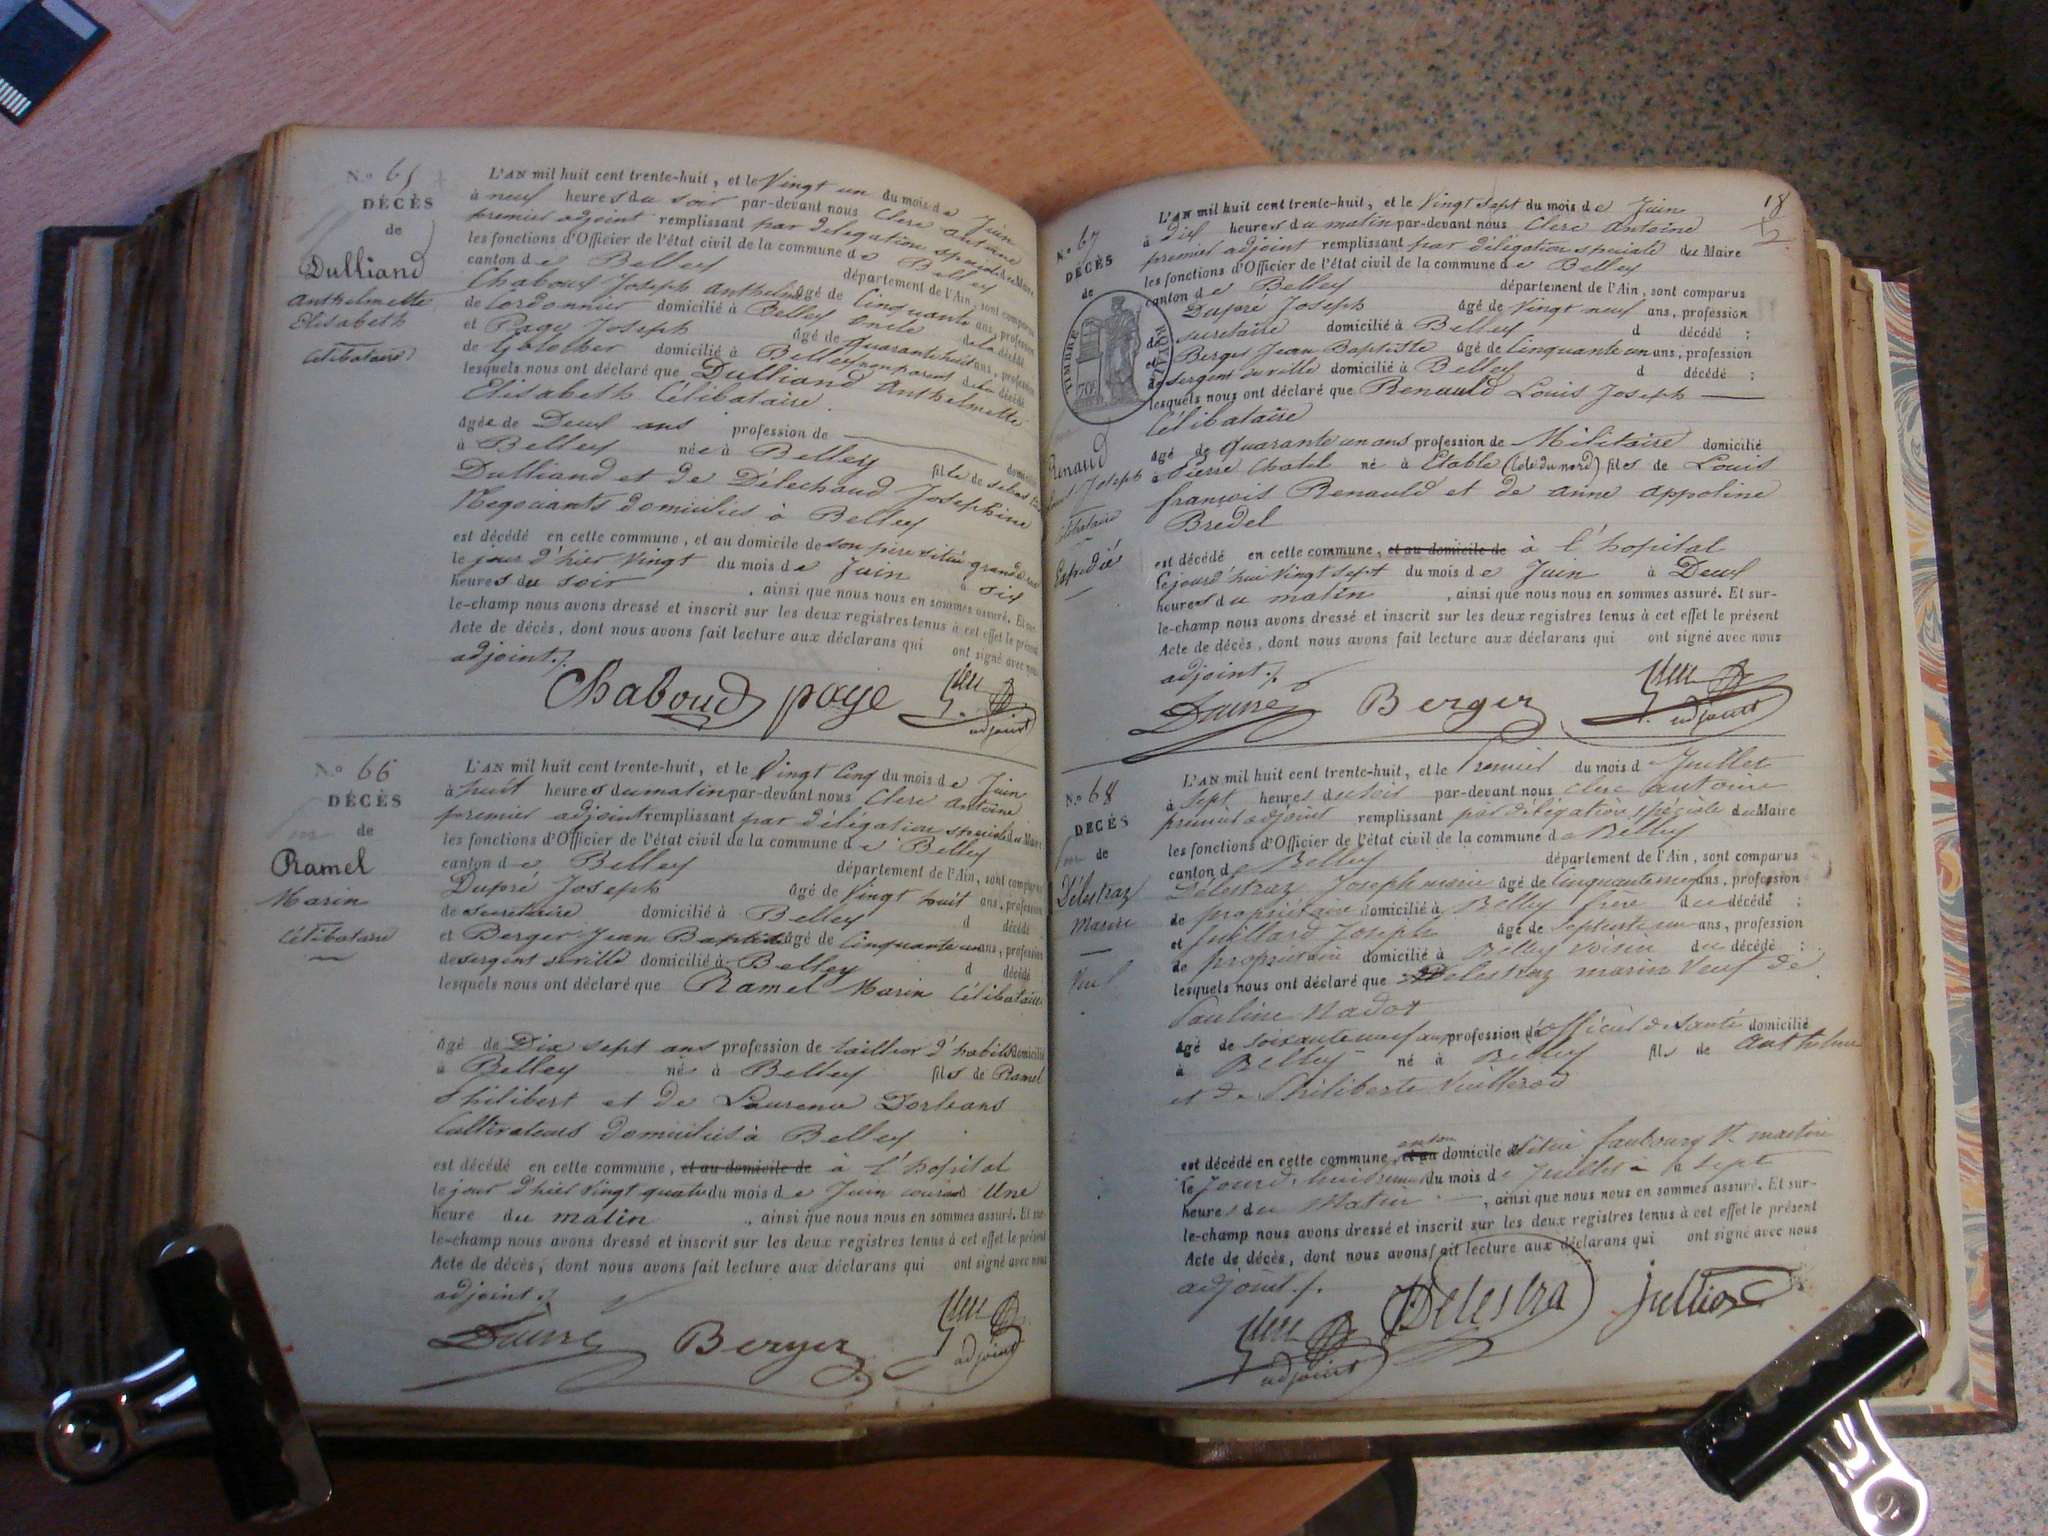 N.o 65
DÉCÈS
de
Dulliand
Anthelmette
Elisabeth
célibataire
L'AN mil huit cent trente-huit, et le Vingt un du mois de Juin
à neuf heures du soir par-devant nous Clerc antoine
premier adjoint remplissant par délégation spéciale du Maire
les fonctions d'Officier de l'état civil de la commune de Belley
canton de Belley département de l'Ain, sont comparus
Chaboux Joseph Anthelme âgé de Cinquante ans, profession
de Cordonnier domicilié à Belley oncle de la décédé
et Page Joseph âgé de quarante huit ans, profession
de domicilié à Belley non parent de la décédé
lesquels nous ont déclaré que Dulliand Anthelmette
Elisabeth Célibataire.
âgée de Deux ans profession de domicilié
à Belley née à Belley fille de
Dulliand et de Délechaud Joséphine
Négociants domiciliés à Belley
est décédé en cette commune, et au domicile de son père situé grande rue
le jour d'hier Vingt du mois de Juin à six
heures du soir , ainsi que nous nous en sommes assuré. Et sur-
le-champ nous avons dressé et inscrit sur les deux registres tenus à cet effet le présent
Acte de décès, dont nous avons fait lecture aux déclarans qui ont signé avec nous
adjoint./.
Chaboud page
adjoint
N.o 66
DÉCÈS
de
Ramel
Marin
célibataire
L'AN mil huit cent trente-huit, et le Vingt Cinq du mois de Juin
à huit heures du matin par-devant nous Clerc Antoine
premier adjoint remplissant par délégation spéciale du Maire
les fonctions d'Officier de l'état civil de la commune de Belley
canton de Belley département de l'Ain, sont comparus
Dupré Joseph âgé de Vingt huit ans, profession
de secretaire domicilié à Belley d décédé
et Berger Jean Baptiste âgé de Cinquante un ans, profession
de sergent de ville domicilié à Belley d décédé
lesquels nous ont déclaré que Ramel Marin Célibataire
âgé de Dix sept ans profession de tailleur d'habits domicilié
à Belley né à Belley fils de Ramel
Philibert et de Laurence Dorleans
Cultivateurs domiciliés à Belley
est décédé en cette commune, et au domicile de à l'hopital
le jour d'hier Vingt quatre du mois de Juin courant Une
heure du matin , ainsi que nous nous en sommes assuré. Et sur-
le-champ nous avons dressé et inscrit sur les deux registres tenus à cet effet le présent
Acte de décès, dont nous avons fait lecture aux déclarans qui ont signé avec nous
adjoint./.
Dupré Berger
adjoint
18
N.o 67
DÉCÈS
de
TIMBRE ROYAL
70c
Renaud
Louis Joseph
célibataire
Expedié
L'AN mil huit cent trente-huit, et le Vingt sept du mois de Juin
à Dix heures du matin par-devant nous Clerc Antoine
premier adjoint remplissant par délégation speciale du Maire
les fonctions d'Officier de l'état civil de la commune de Belley
canton de Belley département de l'Ain, sont comparus
Dupré Joseph âgé de Vingt neuf ans, profession
de secretaire domicilié à Belley d décédé ;
et Berger Jean Baptiste âgé de Cinquante un ans, profession
de sergent de ville domicilié à Belley d décédé ;
lesquels nous ont déclaré que Renauld Louis Joseph
Célibataire
âgé de quarante un ans profession de Militaire domicilié
à Pierre Chatel né à Etable (Cote du nord) fils de Louis
françois Renauld et de anne appoline
Bredel
est décédé en cette commune, et au domicile de à l'hopital
le jourd'hui Vingt sept du mois de Juin à Deux
heures du matin , ainsi que nous nous en sommes assuré. Et sur-
le-champ nous avons dressé et inscrit sur les deux registres tenus à cet effet le présent
Acte de décès, dont nous avons fait lecture aux déclarans qui ont signé avec nous
adjoint./.
Dupré Berger
adjoint
N.o 68
DÉCÈS
de
Délestraz
Marin
Veuf
L'AN mil huit cent trente-huit, et le Premier du mois d Juillet
à sept heures du soir par-devant nous Clerc antoine
premier adjoint remplissant par délégation spéciale du Maire
les fonctions d'Officier de l'état civil de la commune de Belley
canton de Belley département de l'Ain, sont comparus
Délestraz Joseph marie âgé de cinquante neuf ans, profession
de propriétaire domicilié à Belley frère du décédé ;
et Juillard Joseph âgé de septente un ans, profession
de propriétaire domicilié à Belley voisin du décédé ;
lesquels nous ont déclaré que Delestraz marin Veuf de
Pauline Nadot
âgé de soixante neuf ans profession d'officier de santé domicilié
à Belley né à Belley fils de Anthelme
et de Philiberte Vuillerod
est décédé en cette commune, en son et au domicile situé faubourg St. martin
le Jourd'hui premier du mois de Juillet à sept
heures du Matin , ainsi que nous nous en sommes assuré. Et sur-
le-champ nous avons dressé et inscrit sur les deux registres tenus à cet effet le présent
Acte de décès, dont nous avons fait lecture aux déclarans qui ont signé avec nous
adjoint./.
Delestra
adjoint